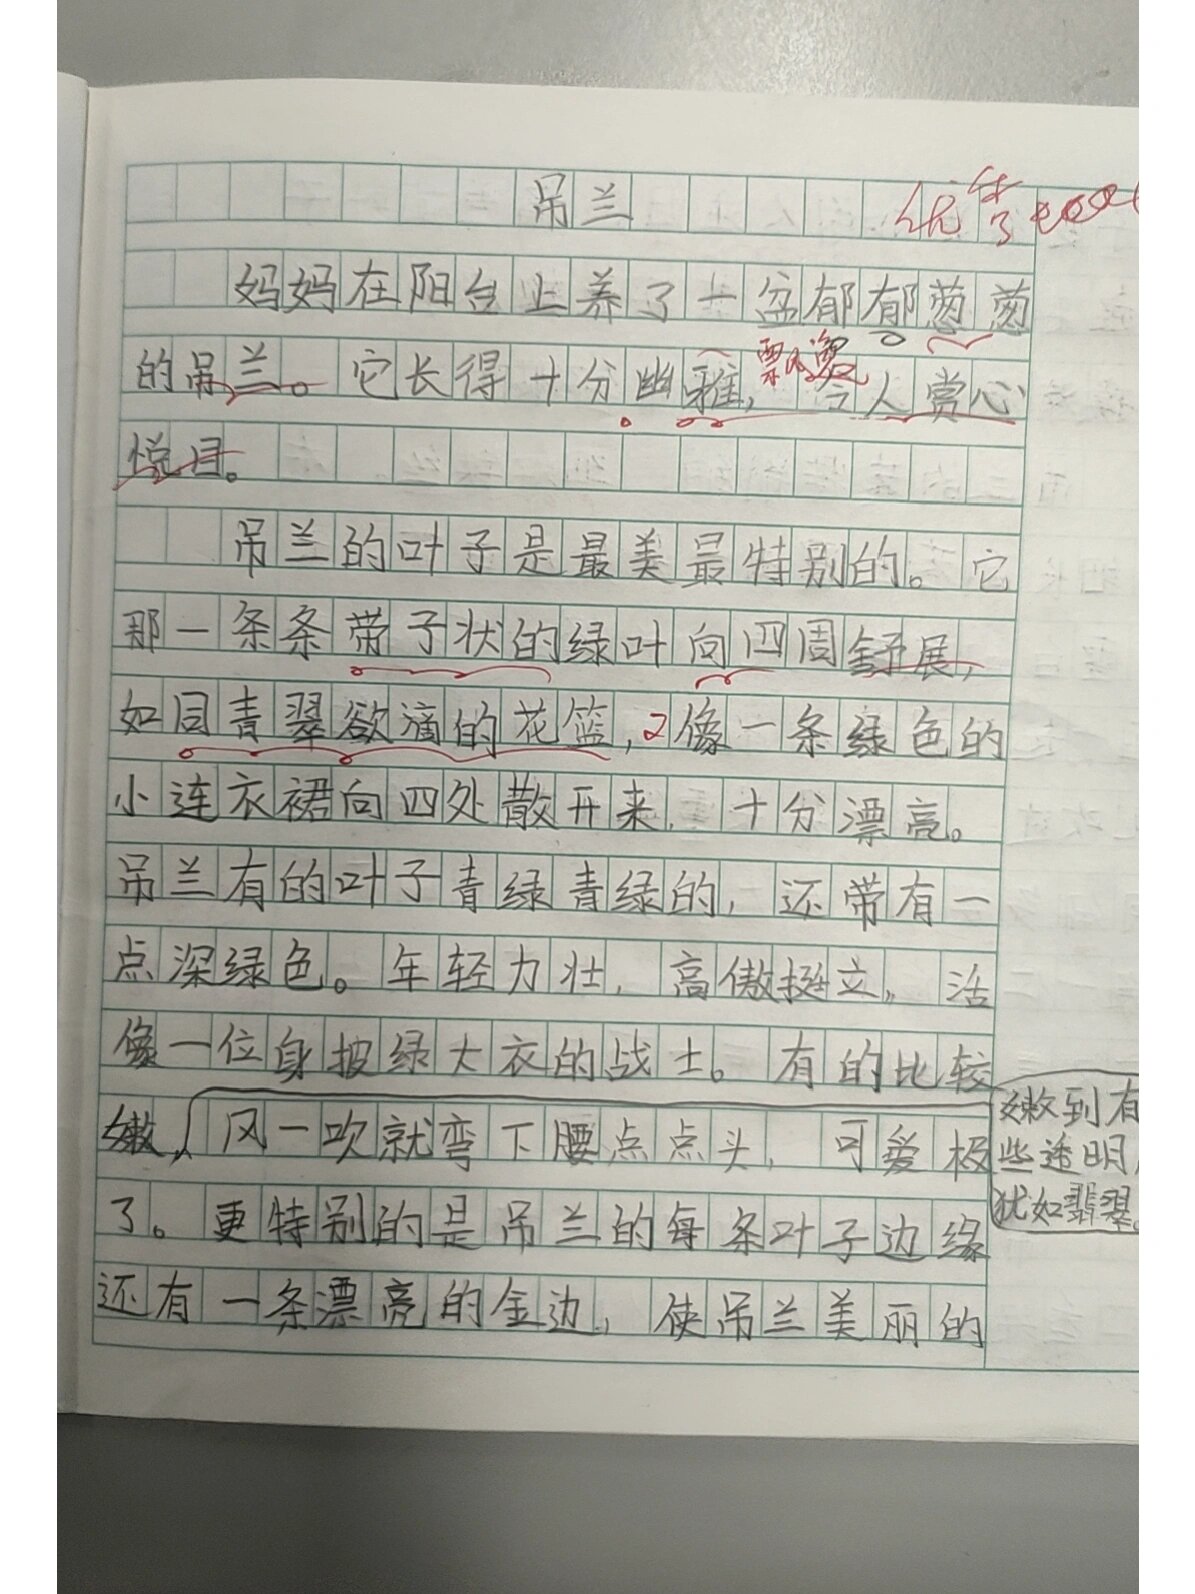 吊兰
妈妈在阳台上养了一盆郁郁葱葱
的吊兰。它长得十分幽雅,令人赏心
悦目。
吊兰的叶子是最美最特别的。它
那一条条带子状的绿叶向四周舒展,
如同青翠欲滴的花篮,像一条绿色的
小连衣裙向四处散开来,十分漂亮。
吊兰有的叶子青绿青绿的,还带有一
点深绿色。年轻力壮,高傲挺立,活
像一位身披绿大衣的战士。有的比较
嫩,风一吹就弯下腰点点头,可爱极
嫩到有
些透明,
犹如翡翠。
了。更特别的是吊兰的每条叶子边缘
还有一条漂亮的金边,使吊兰美丽的